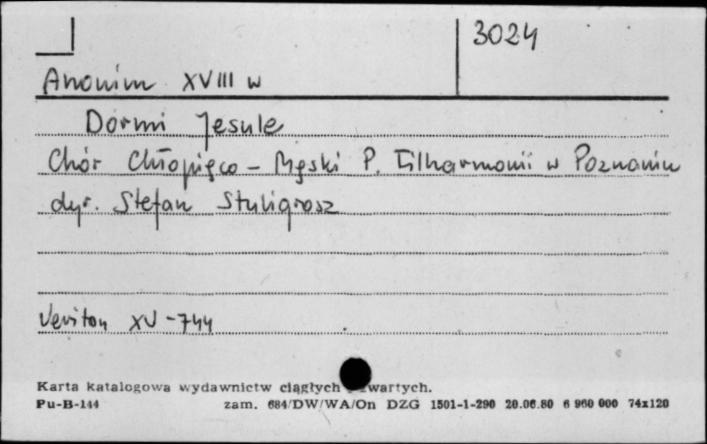 3024
Anonim XVIII w
Dormi Jesule
Chór Chłopięco - Męski P. Filharmonii w Poznaniu
dyr. Stefan Stuligrosz
Veriton XV-744
Karta katalogowa wydawnictw ciągłych wartych.
Pu-B-144 zam. 684/DW/WA/On DZG 1501-1-290 20.06.80 6 960 000 74x120